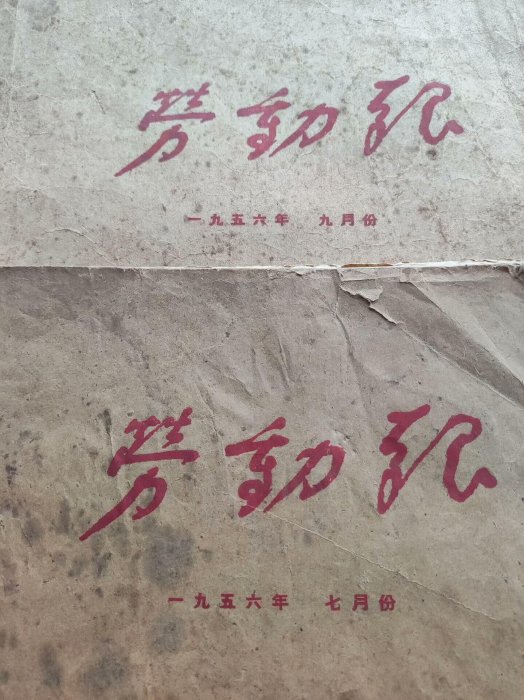 劳動報
一九五六年 九月份
劳動報
一九五六年 七月份